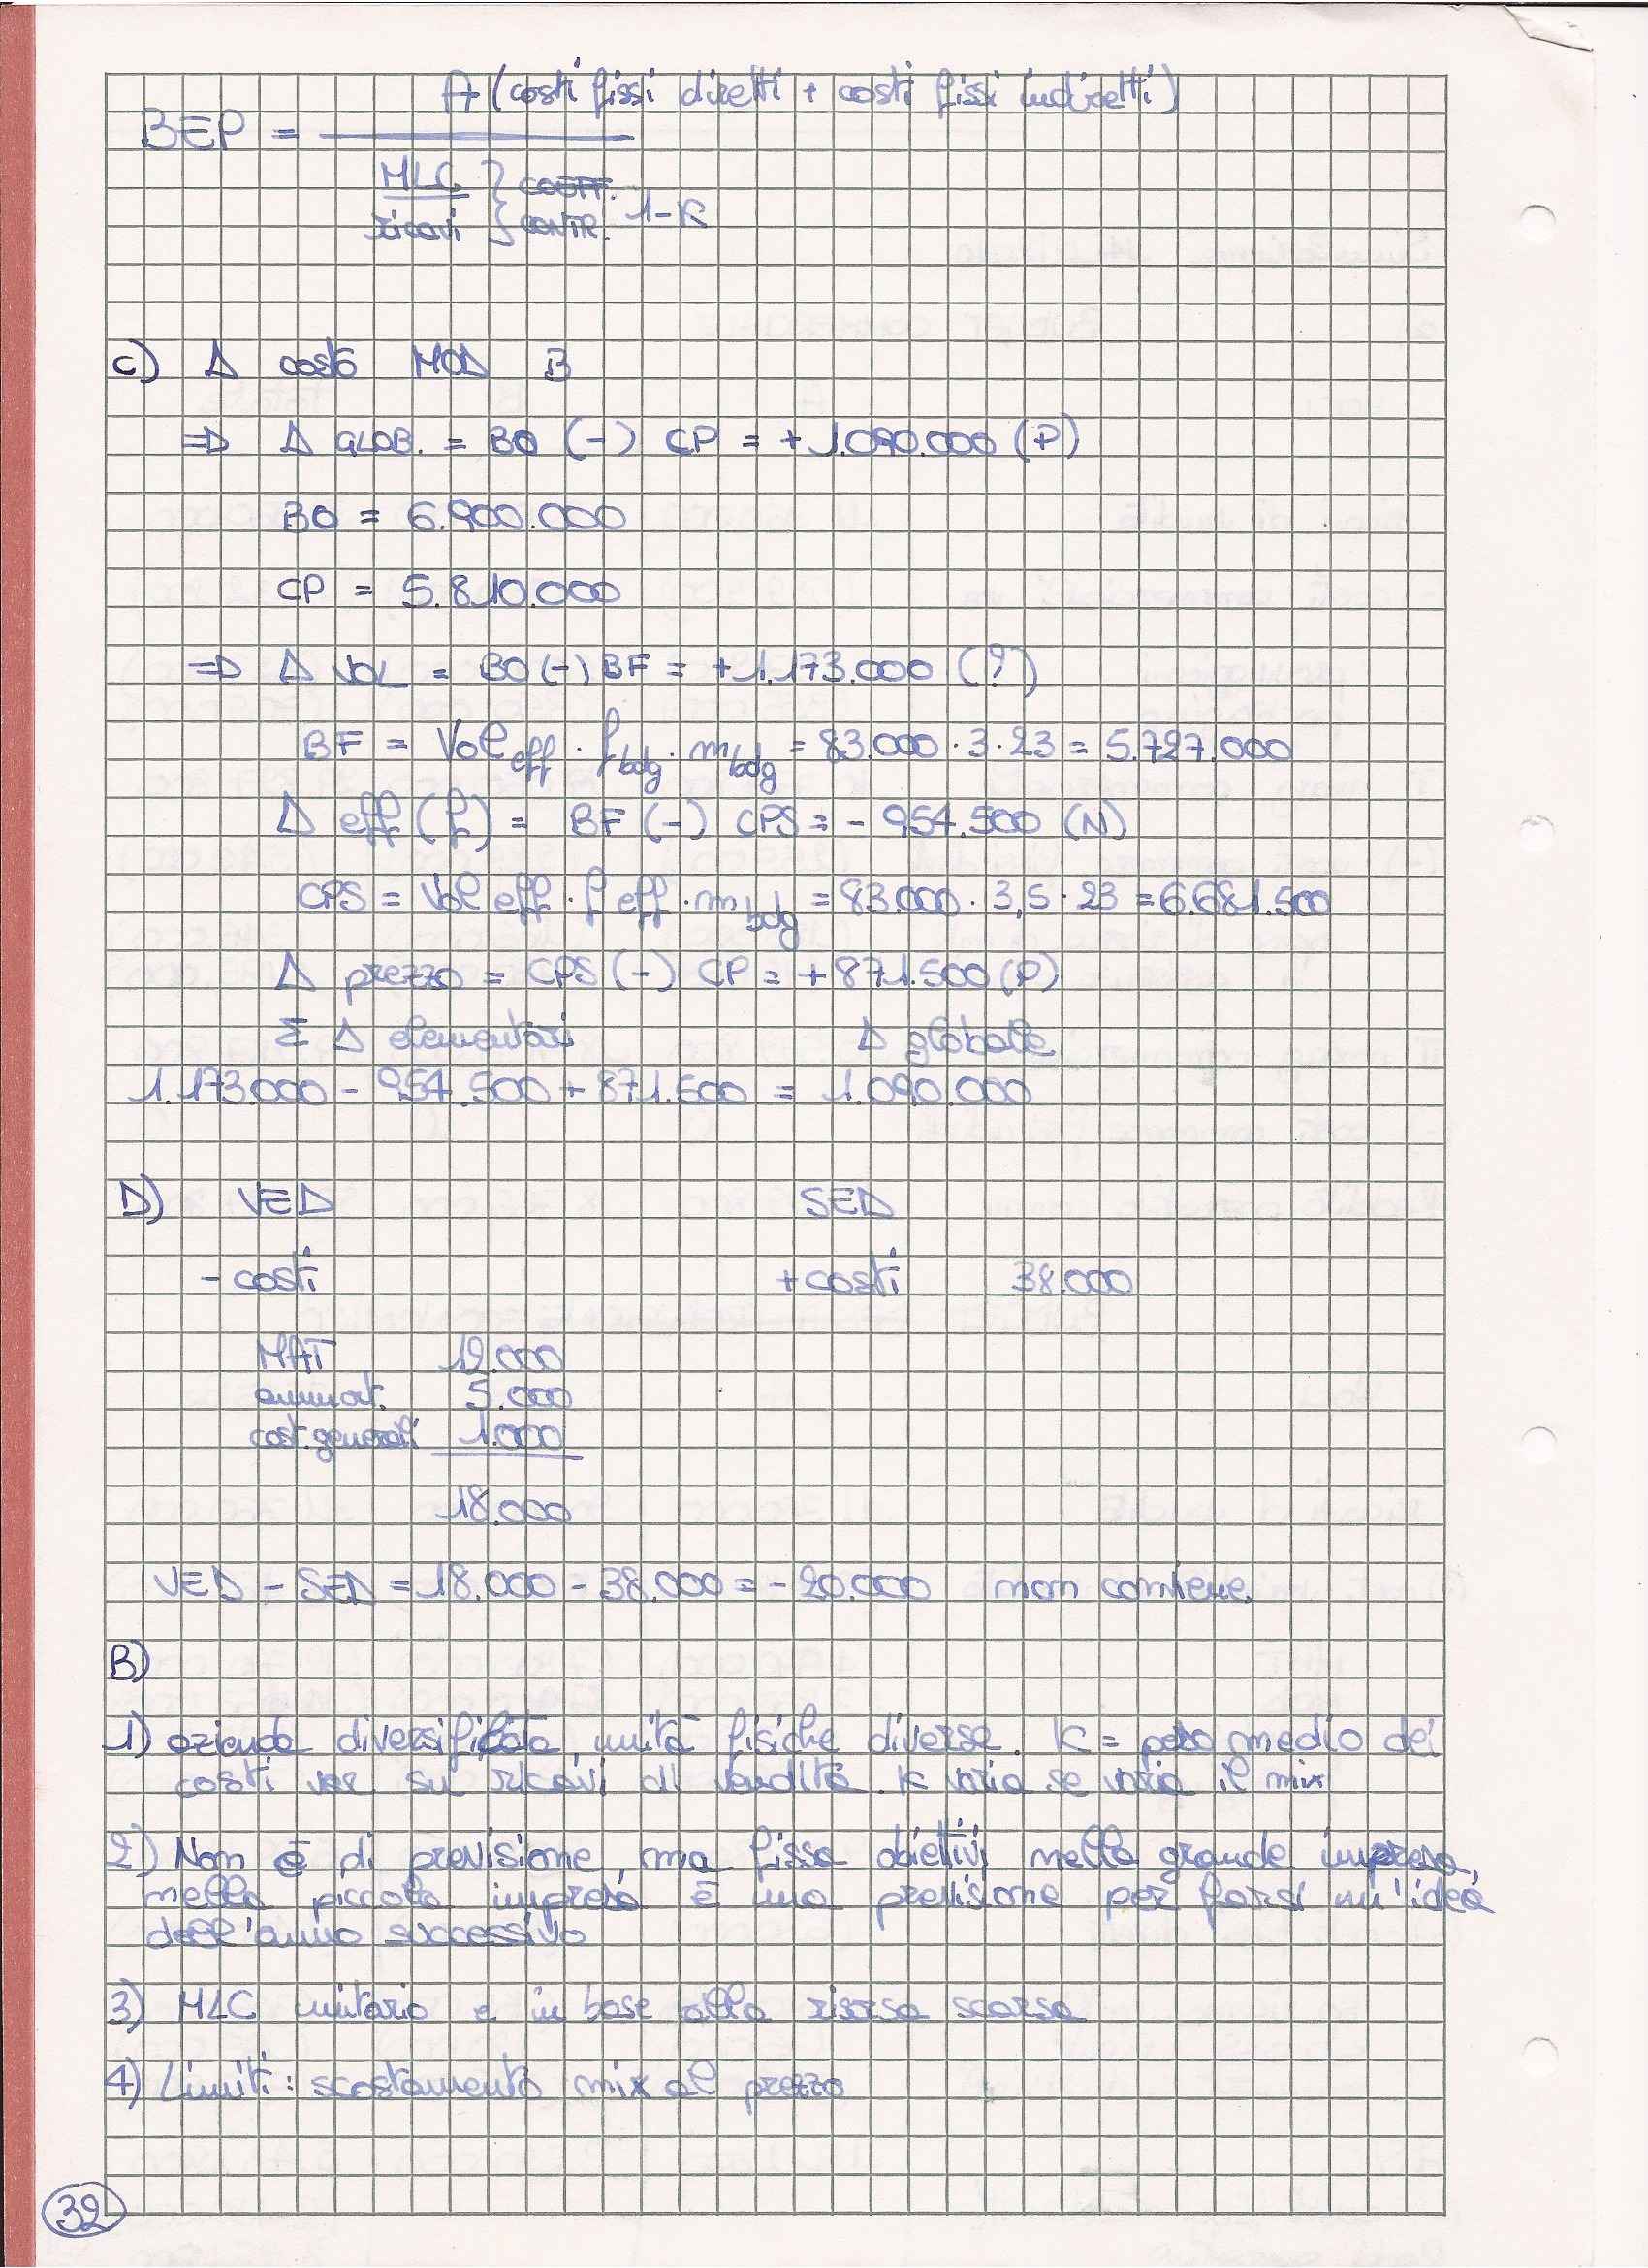 A (costi fissi diretti + costi fissi indiretti)
BEP =
MLC } COEFF.
ricavi } CONTR. 1-K
C) Δ costo MOD B
=> Δ GLOB. = BO (-) CP = + 1.090.000 (P)
BO = 6.900.000
CP = 5.810.000
=> Δ VOL = BO (-) BF = + 1.173.000 (?)
BF = Vol eff · f bdg · m bdg = 83.000 · 3 · 23 = 5.727.000
Δ eff (f) = BF (-) CPS = - 954.500 (N)
CPS = Vol eff · f eff · m bdg = 83.000 · 3,5 · 23 = 6.681.500
Δ prezzo = CPS (-) CP = + 871.500 (P)
Σ Δ elementari Δ globale
1.173.000 - 954.500 + 871.500 = 1.090.000
D) VED SED
- costi + costi 38.000
MAT 12.000
ammort. 5.000
cost. generali 1.000
18.000
VED - SED = 18.000 - 38.000 = - 20.000 non conviene.
B)
1) azienda diversificata, unità fisiche diverse. K = peso medio dei
costi var su ricavi di vendita. K varia se varia il mix
2) Non è di previsione, ma fissa obietivi nella grande impresa,
nella piccola impresa è una previsione per farsi un'idea
dell'anno successivo
3) MLC unitario e in base alla risorsa scarsa
4) Limiti: scostamento mix al prezzo
32